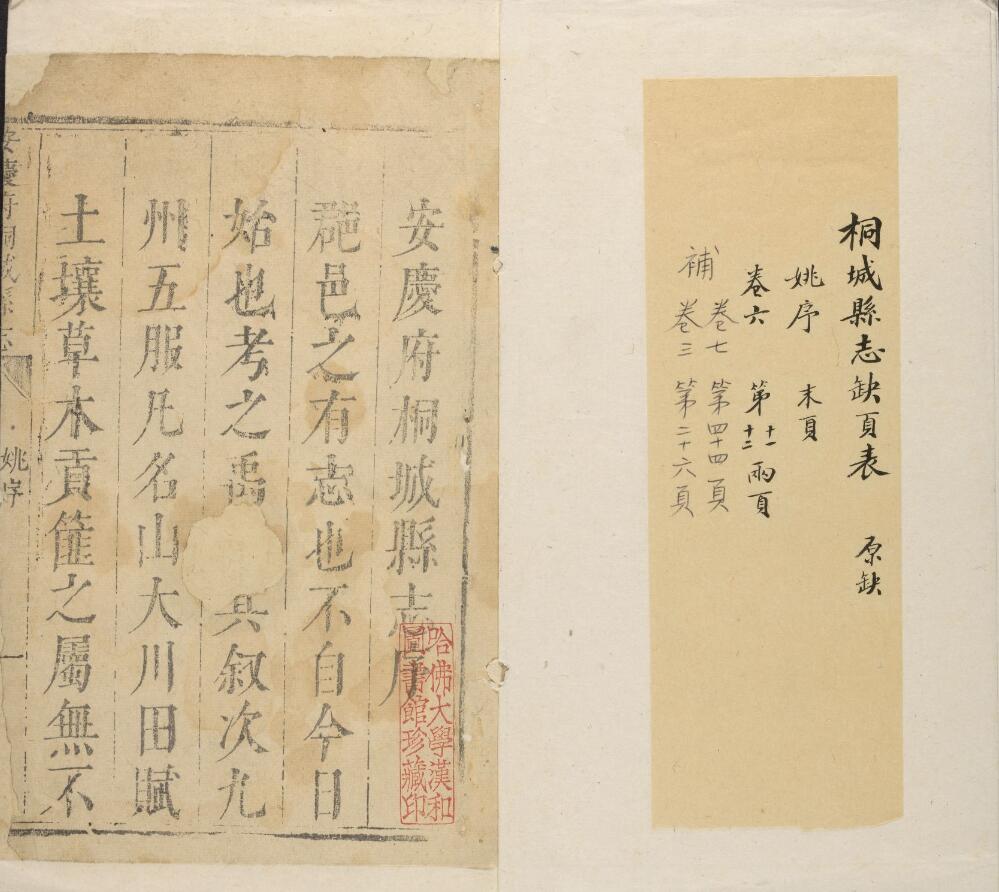 桐城縣志缺頁表 原缺
姚序 末頁
卷六 第十一十二兩頁
卷七 第四十四頁
補 卷三 第二十六頁
安慶府桐城縣志序
郡邑之有志也不自今日
始也考之禹 其叙次九
州五服凡名山大川田賦
土壤草木貢篚之屬無不
哈佛大學漢和
圖書館珍藏印
安慶府桐城縣志
姚序
一